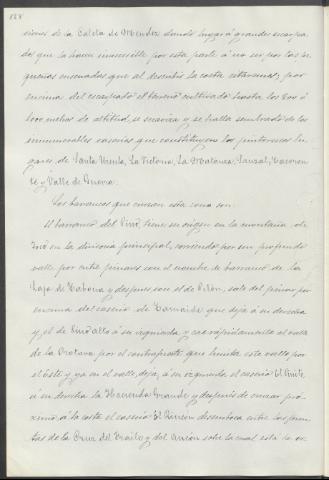 188
siones de la Caleta de Mendez dando lugar á grandes escarpa
dos que la hacen inaccesible por esta parte á no ser por las pe
queñas ensenadas que al descubrir la costa estavana; por
encima del escarpado el terreno cultivado hasta los 800 ó
1000 metros de altitud, se suaviza y se halla sembrado de las
innumerables caserias que constituyen los pintorescos lu
gares de Santa Ursula, La Victoria, La Matanza, Sauzal, Tacoron
te y Valle de Guerra.
Los barrancos que cruzan esta zona son:
El barranco del Pino tiene su origen en la montaña de
en la divisoria principal, corriendo por un profundo
valle por entre pinares con el nombre de barranco de la
Raja de Habona y despues con el de Pilón, sale del pinar por
encima del caserio de que deja á su derecha
y el de Pinoalto á su izquierda y cae rápidamente al valle
de la Orotava por el contrafuerte que limita este valle por
el Este y ya en el valle, deja, á su izquierda el caserio El
á su derecha la Hacienda Grande y despues de cruzar pró
ximo á la costa el caserio El Rincón desemboca entre las pun
tas de la Cruz del Fraile y del Ancón sobre la cual está la er